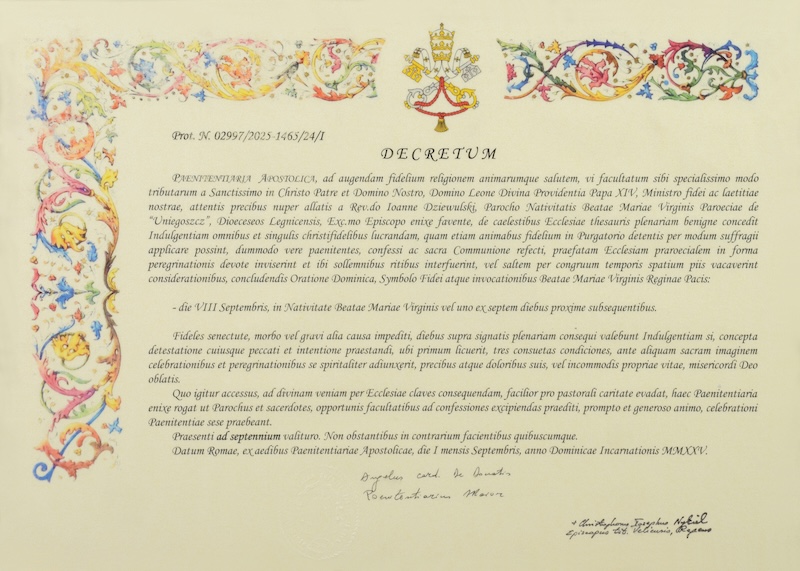 Prot. N. 02997/2025-1465/24/I
DECRETUM
PAENITENTIARIA APOSTOLICA, ad augendam fidelium religionem animarumque salutem, vi facultatum sibi specialissimo modo
tributarum a Sanctissimo in Christo Patre et Domino Nostro, Domino Leone Divina Providentia Papa XIV, Ministro fidei ac laetitiae
nostrae, attentis precibus nuper allatis a Rev.do Ioanne Dziewulski, Parocho Nativitatis Beatae Mariae Virginis Paroeciae de
“Uniegoszcz”, Dioeceseos Legnicensis, Exc.mo Episcopo enixe favente, de caelestibus Ecclesiae thesauris plenariam benigne concedit
Indulgentiam omnibus et singulis christifidelibus lucrandam, quam etiam animabus fidelium in Purgatorio detentis per modum suffragii
applicare possint, dummodo vere paenitentes, confessi ac sacra Communione refecti, praefatam Ecclesiam praroecialem in forma
peregrinationis devote inviserint et ibi sollemnibus ritibus interfuerint, vel saltem per congruum temporis spatium piis vacaverint
considerationibus, concludendis Oratione Dominica, Symbolo Fidei atque invocationibus Beatae Mariae Virginis Reginae Pacis:
- die VIII Septembris, in Nativitate Beatae Mariae Virginis vel uno ex septem diebus proxime subsequentibus.
Fideles senectute, morbo vel gravi alia causa impediti, diebus supra signatis plenariam consequi valebunt Indulgentiam si, concepta
detestatione cuiusque peccati et intentione praestandi, ubi primum licuerit, tres consuetas condiciones, ante aliquam sacram imaginem
celebrationibus et peregrinationibus se spiritaliter adiunxerit, precibus atque doloribus suis, vel incommodis propriae vitae, misericordi Deo
oblatis.
Quo igitur accessus, ad divinam veniam per Ecclesiae claves consequendam, facilior pro pastorali caritate evadat, haec Paenitentiaria
enixe rogat ut Parochus et sacerdotes, opportunis facultatibus ad confessiones excipiendas praediti, prompto et generoso animo, celebrationi
Paenitentiae sese praebeant.
Praesenti ad septennium valituro. Non obstantibus in contrarium facientibus quibuscumque.
Datum Romae, ex aedibus Paenitentiariae Apostolicae, die I mensis Septembris, anno Dominicae Incarnationis MMXXV.
Angelus card. De Donatis
Paenitentiarius Maior
+ Christophorus Iosephus Nykiel
Episcopus tit. Velicuris, Regens